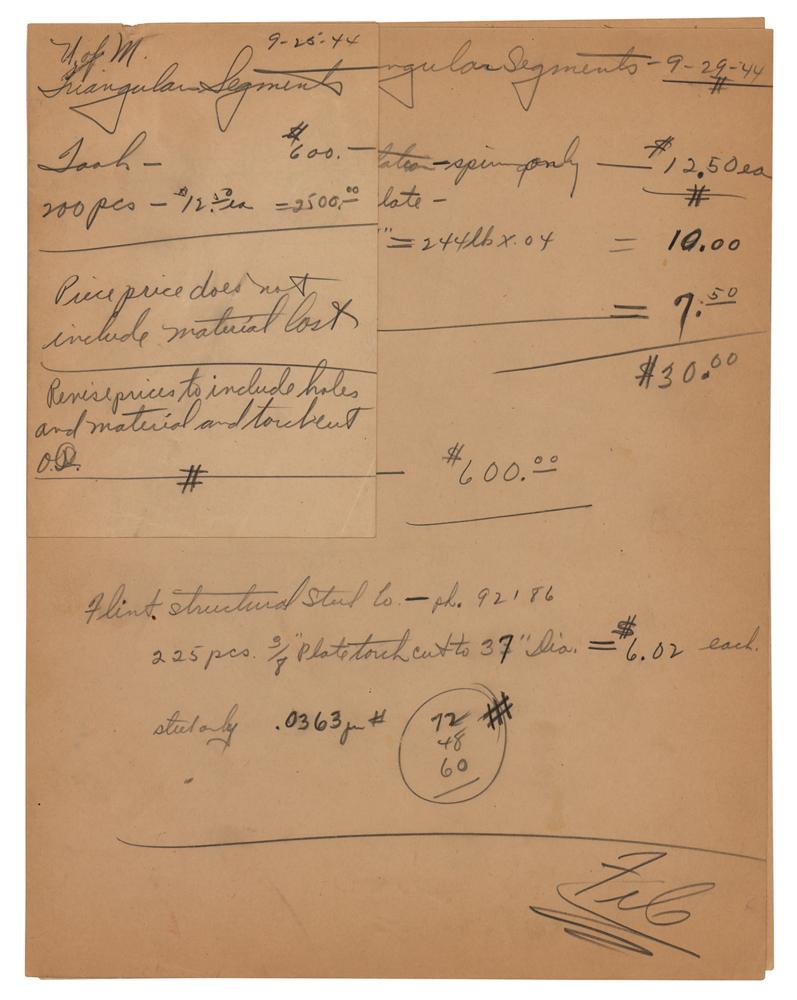 U. of M. 9-25-44
Triangular Segments
Tools — $600.—
200 pcs — $12.50 ea = 2500.00
Piece price does not
include material cost
Revise prices to include holes
and material and torch cut
O.D.
#
ngular Segments - 9-29-44
#
lation - spinning only — $12.50 ea
#
late -
" = 244 lb x .04 = 10.00
= 7.50
$30.00
— $600.00
Flint. Structural Steel Co. — ph. 92186
225 pcs. 3/8" Plate torch cut to 37" Dia. = $6.02 each.
steel only .0363 per #
72 #
48
60
File